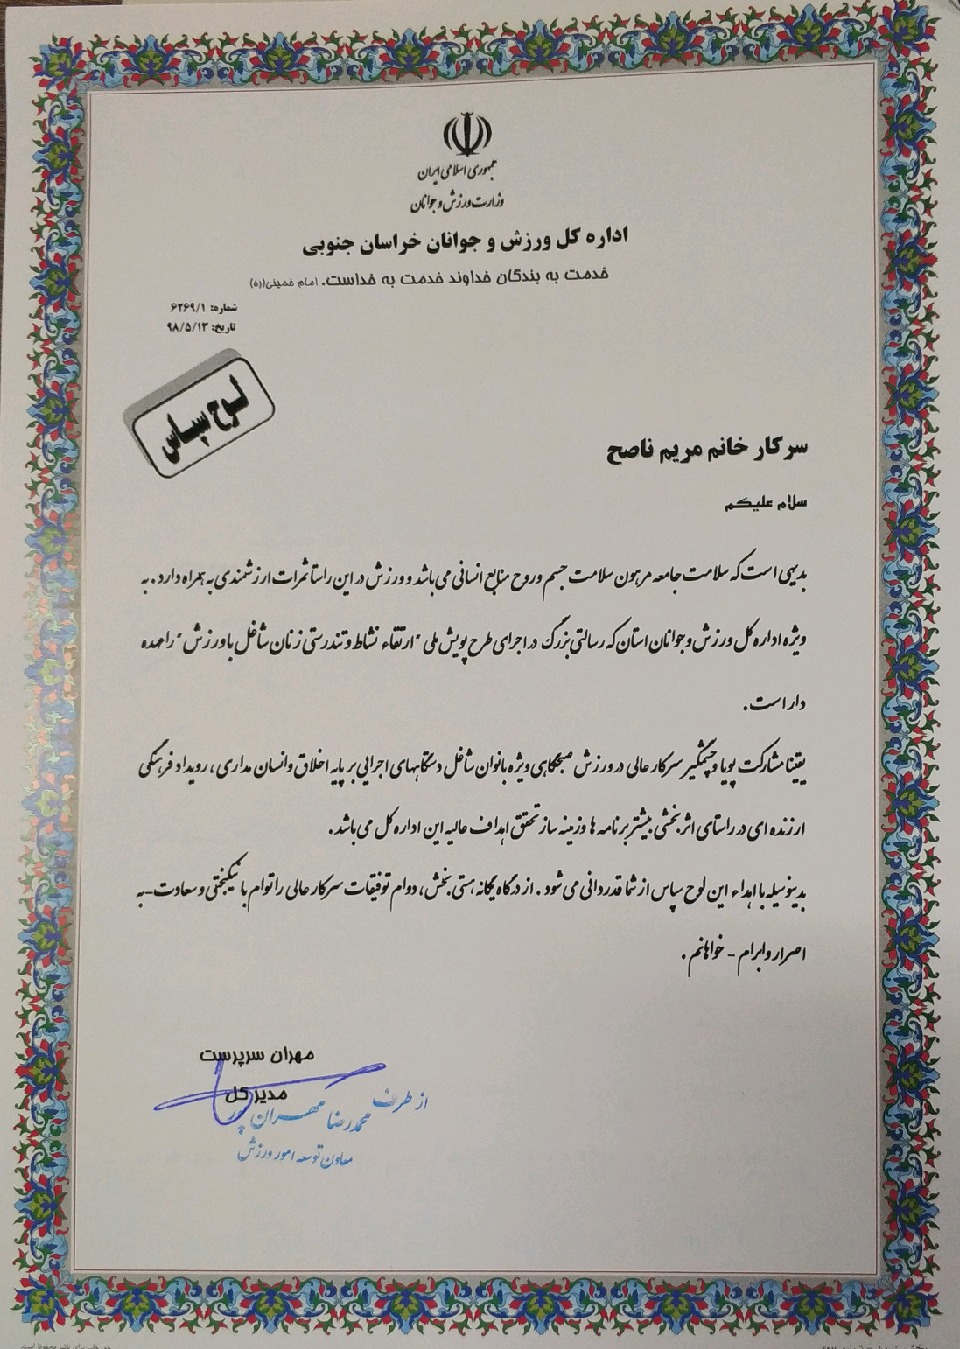 جمهوری اسلامی ایران
وزارت ورزش و جوانان
اداره کل ورزش و جوانان خراسان جنوبی
خدمت به بندگان خداوند خدمت به خداست. امام خمینی(ره)
شماره: ۶۲۶۹/۱
تاریخ: ۹۸/۵/۱۲
لوح سپاس
سرکار خانم مریم ناصح
سلام علیکم
بدیهی است که سلامت جامعه مرهون سلامت جسم و روح منابع انسانی می باشد و ورزش در این راستا ثمرات ارزشمندی به همراه دارد. به
ویژه اداره کل ورزش و جوانان استان که رسالتی بزرگ در اجرای طرح پویش ملی "ارتقاء نشاط و تندرستی زنان شاغل با ورزش" را عهده
دار است.
یقینا مشارکت پویا و چشمگیر سرکار عالی در ورزش صبحگاهی ویژه بانوان شاغل دستگاههای اجرایی بر پایه اخلاق و انسان مداری، رویداد فرهنگی
ارزنده ای در راستای اثر بخشی بیشتر برنامه ها و زمینه ساز تحقق اهداف عالیه این اداره کل می باشد.
بدینوسیله با اهداء این لوح سپاس از شما قدردانی می شود. از درگاه یگانه هستی بخش، دوام توفیقات سرکار عالی را توام با نیکبختی و سعادت - به
اصرار و ابرام - خواهانم.
مهران سرپرست
مدیر کل
از طرف
محمدرضا مهران پور
معاون توسعه امور ورزش